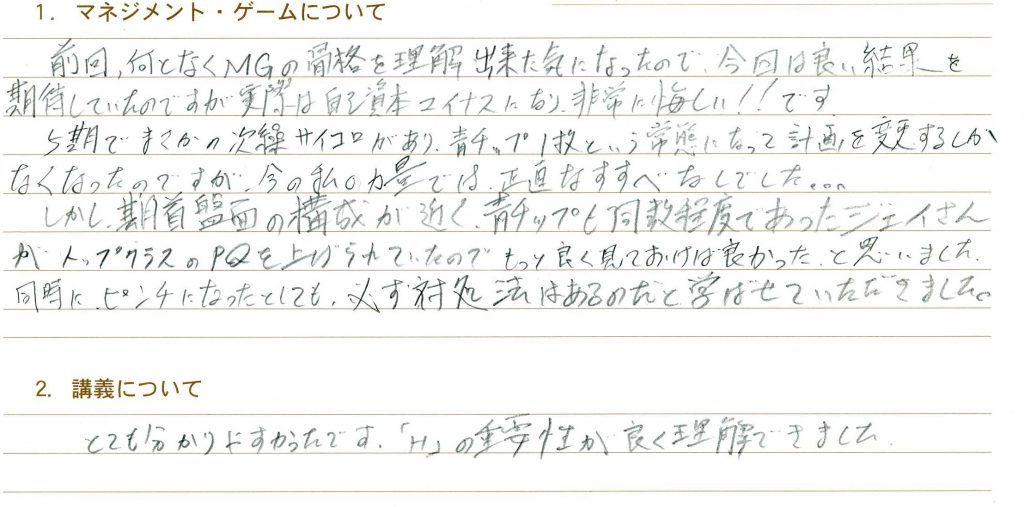 1. マネジメント・ゲームについて
前回,何となくMGの骨格を理解出来た気になったので、今回は良い結果を
期待していたのですが実際は自己資本マイナスになり、非常に悔しい!!です
5期でまさかの次繰サイコロがあり、青チップ1枚という常態になって計画を変更するしか
なくなったのですが、今の私の力量では、正直なすすべなしでした...
しかし、期首盤面の構成が近く、青チップも同数程度であったジェイさん
がトップクラスのPQを上げられていたのでもっと良く見ておけば良かった、と思いました。
同時に、ピンチになったとしても、必ず対処法はあるのだと学ばせていただきました。
2. 講義について
とても分かりやすかったです。「H」の重要性が良く理解できました。